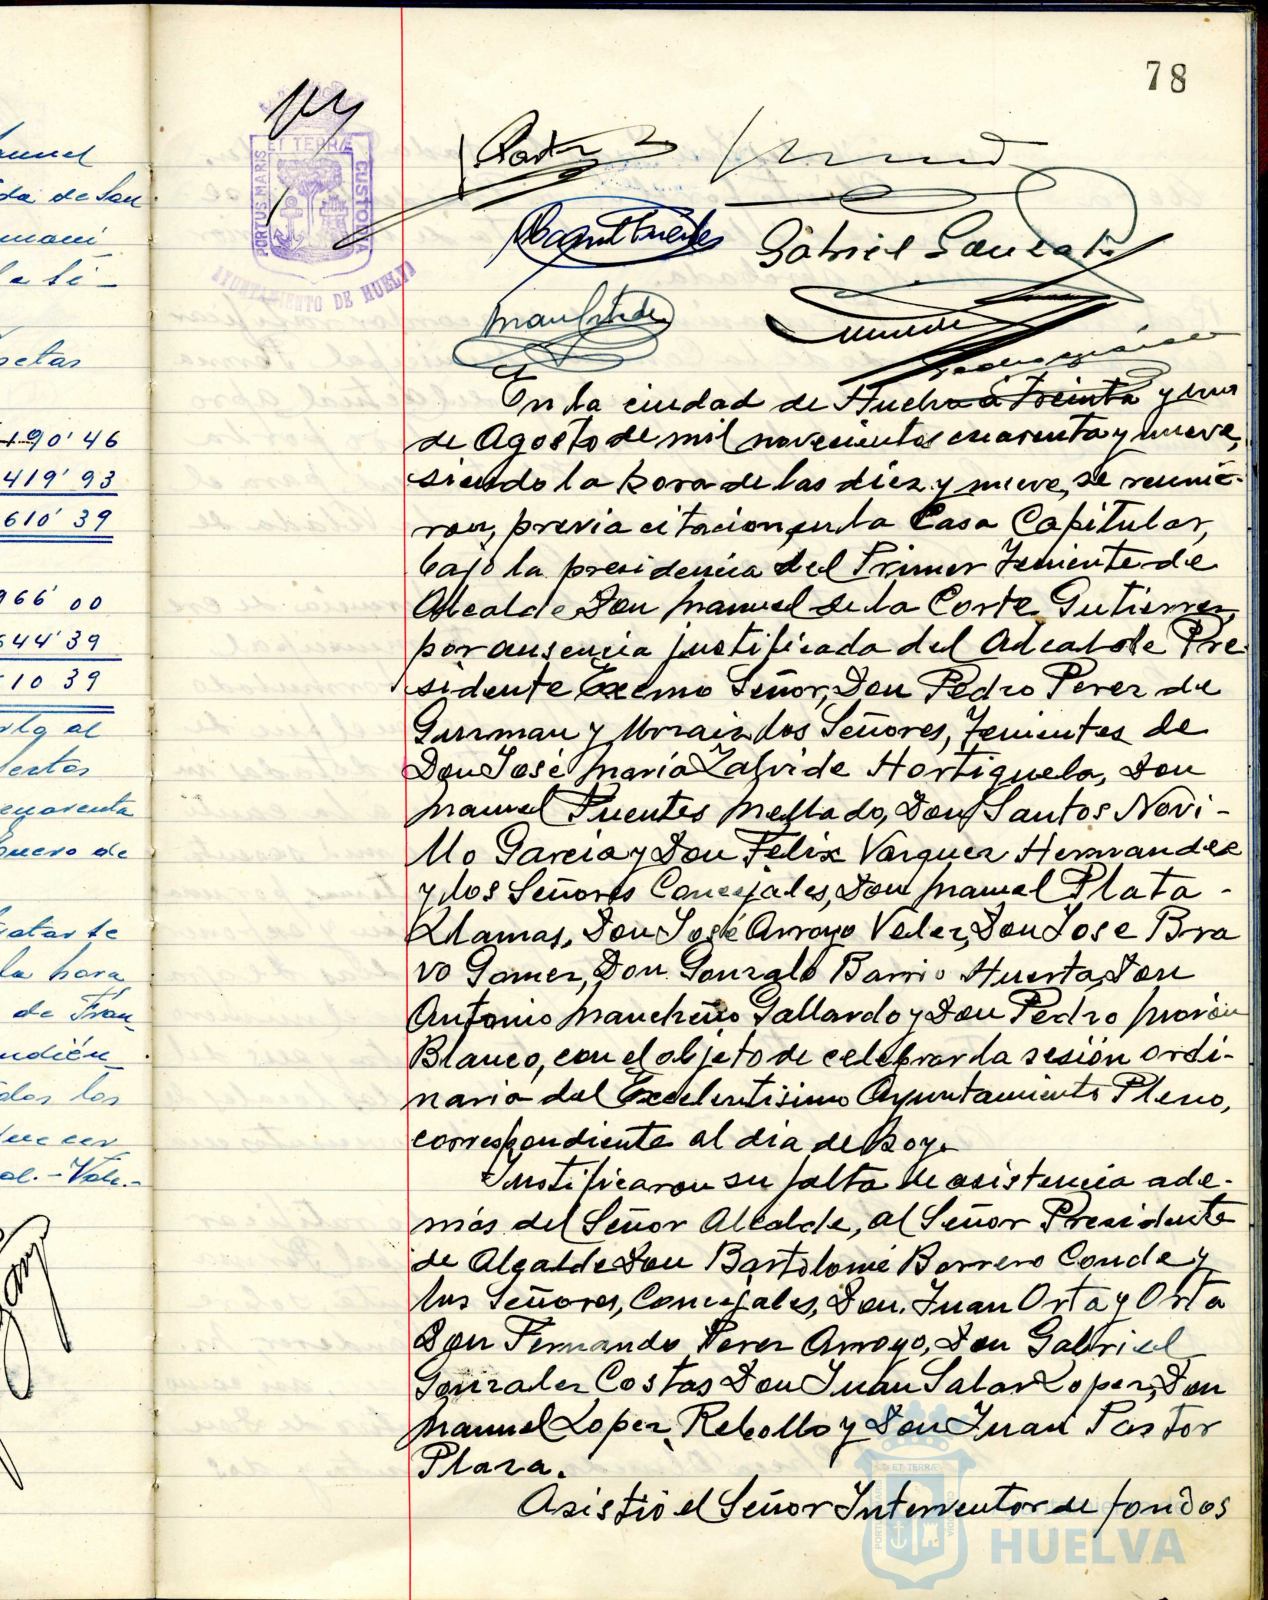 78
PORTUS MARIS ET TERRÆ CUSTODIA
AYUNTAMIENTO DE HUELVA
Gabriel Gonzalez
En la ciudad de Huelva a treinta y uno
de Agosto de mil novecientos cuarenta y nueve,
siendo la hora de las diez y nueve, se reunie-
ron, previa citacion, en la Casa Capitular,
bajo la presidencia del Primer Teniente de
Alcalde Don Manuel de la Corte Gutierrez,
por ausencia justificada del Alcalde Pre-
sidente Excmo Señor, Don Pedro Perez de
Guzman y Urzaiz, los Señores, Tenientes de
Don José María Zalvide Hortiguela, Don
Manuel Fuentes Mellado, Don Santos Novi-
llo Garcia y Don Félix Vazquez Hernandez
y los Señores Concejales, Don Manuel Plata -
Llamas, Don José Arroyo Velez, Don Jose Bra
vo Gamez, Don Gonzalo Barrio Huerta, Don
Antonio Mancheño Gallardo y Don Pedro Morón
Blanco, con el objeto de celebrar la sesión ordi-
naria del Excelentisimo Ayuntamiento Pleno,
correspondiente al dia de hoy.
Justificaron su falta de asistencia ade-
más del Señor Alcalde, al Señor Presidente
de Algalde Don Bartolomé Borrero Conde y
los Señores, Concejales, Don Juan Orta y Orta
Don Fernando Perez Arroyo, Don Gabriel
Gonzalez Costas Don Juan Salar Lopez, Don
Manuel Lopez Rebollo y Don Juan Pastor
Plaza.
Asistió el Señor Interventor de fondos
HUELVA
da de San
setas
190'46
419'93
610'39
966'00
644'39
10 39
al
cuarenta
de
la hora
de Fran-
los